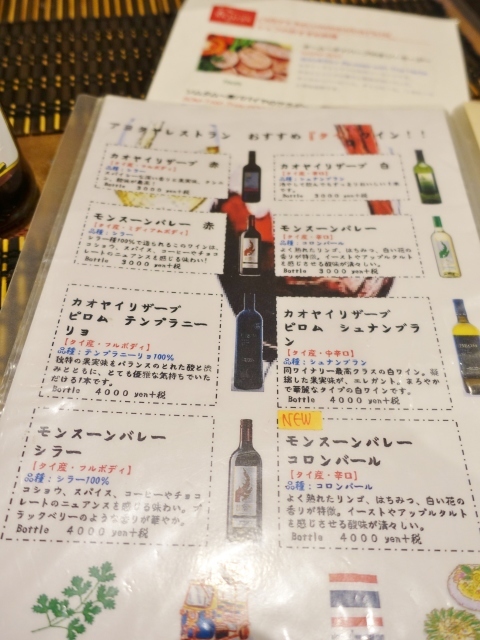 レストラン おすすめ
カオヤイリザーブ 赤
品種：シラー
Bottle 3000 yen+税
カオヤイリザーブ 白
Bottle 3000 yen+税
モンスーンバレー 赤
【タイ産・ミディアムフルボディ】
品種：シラー
シラー種100％で造られるこのワインは、
コショウ、スパイス、コーヒーやチョコ
レートのニュアンスを感じる味わい！
Bottle 3000 yen+税
モンスーンバレー 白
品種：コロンバール
よく熟れたリンゴ、はちみつ、白い花の
香りが特徴。イーストやアップルタルト
を感じさせる酸味が清々しい。
Bottle 3000 yen+税
カオヤイリザーブ
ピロム テンプラニー
リョ
【タイ産・フルボディ】
品種：テンプラニーリョ100％
独特の果実味とバランスのとれた酸と渋
みとともに、とても優雅な気持ちでいた
だける1本です。
Bottle 4000 yen+税
カオヤイリザーブ
ピロム シュナンブラ
ン
【タイ産・中辛口】
品種：シュナンブラン
同ワイナリー最高クラスの白ワイン。凝
縮した果実味が、エレガント、まろやか
で華麗なタイプの白ワインです。
Bottle 4000 yen+税
モンスーンバレー
シラー
【タイ産・フルボディ】
品種：シラー100％
コショウ、スパイス、コーヒーやチョコ
レートのニュアンスを感じる味わい。ブ
ラックベリーのような香りが華やか。
Bottle 4000 yen+税
NEW
モンスーンバレー
コロンバール
【タイ産・辛口】
品種：コロンバール
よく熟れたリンゴ、はちみつ、白い花の
香りが特徴。イーストやアップルタルト
を感じさせる酸味が清々しい。
Bottle 4000 yen+税